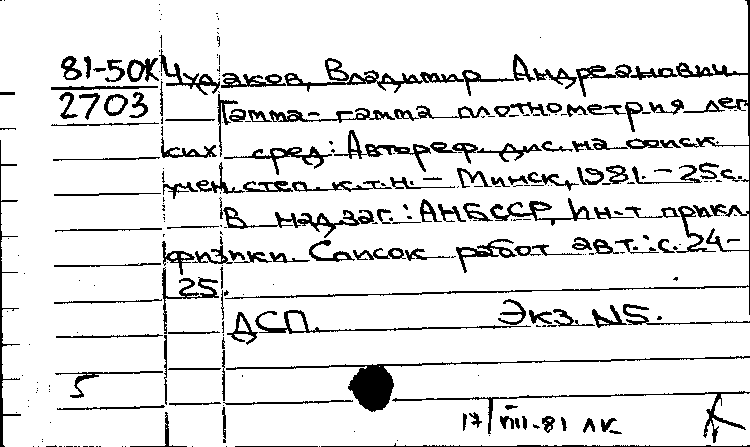 81-50К Чудаков, Владимир Андреанович
2703 Гамма-гамма плотнометрия лег-
ких сред: Автореф. дис. на соиск.
учен. степ. к.т.н. – Минск, 1981. – 25с.
В надзаг.: АНБССР, Ин-т прикл.
физики. Список работ авт.: с. 24-
25.
ДСП. Экз. №5.
5
17/VIII-81 ЛК